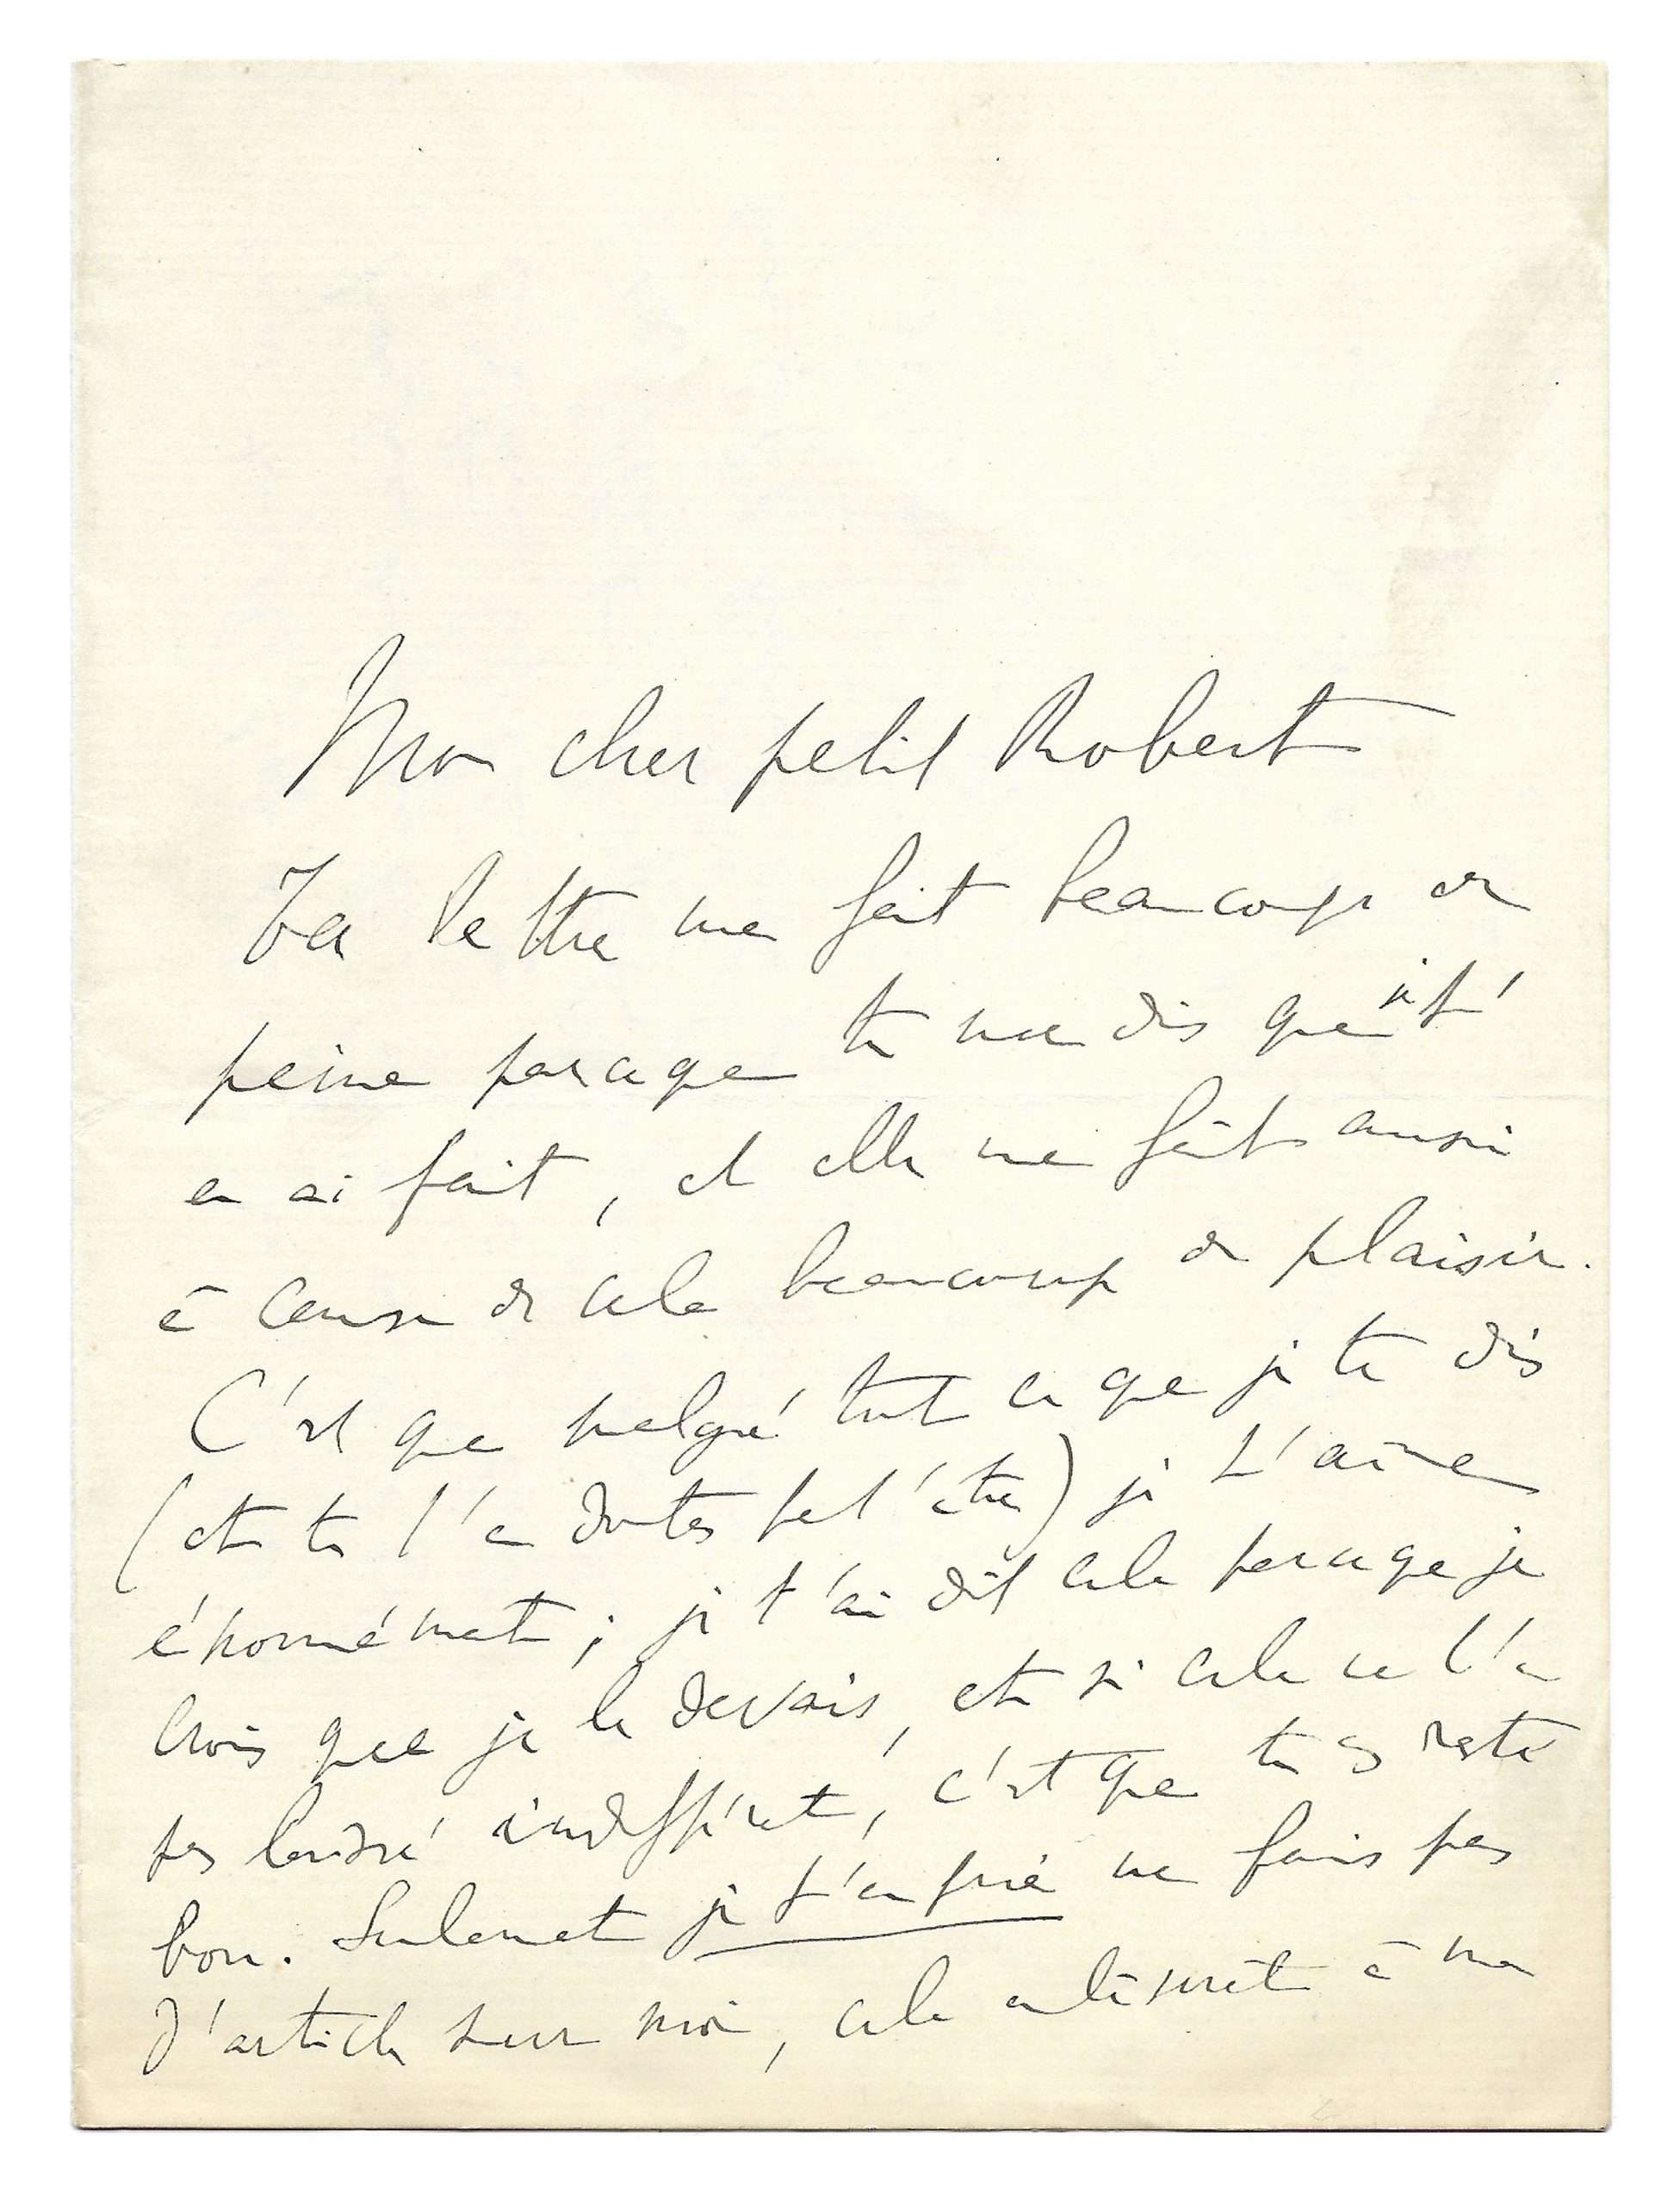 Mon cher petit Robert
Ta lettre me fait beaucoup de
peine parce que tu me dis que je t'
en ai fait, et elle me fait aussi
à cause de cela beaucoup de plaisir.
C'est que malgré tout ce que je te dis
(et tu l'en doutes peut'être) je t'aime
énormément ; je t'ai dit cela parce que je
crois que je le devais, et si cela ne t'a
pas laissé indifférent, c'est que tu es resté
bon. Seulement je t'en prie ne fais pas
d'article sur moi, cela
à ma